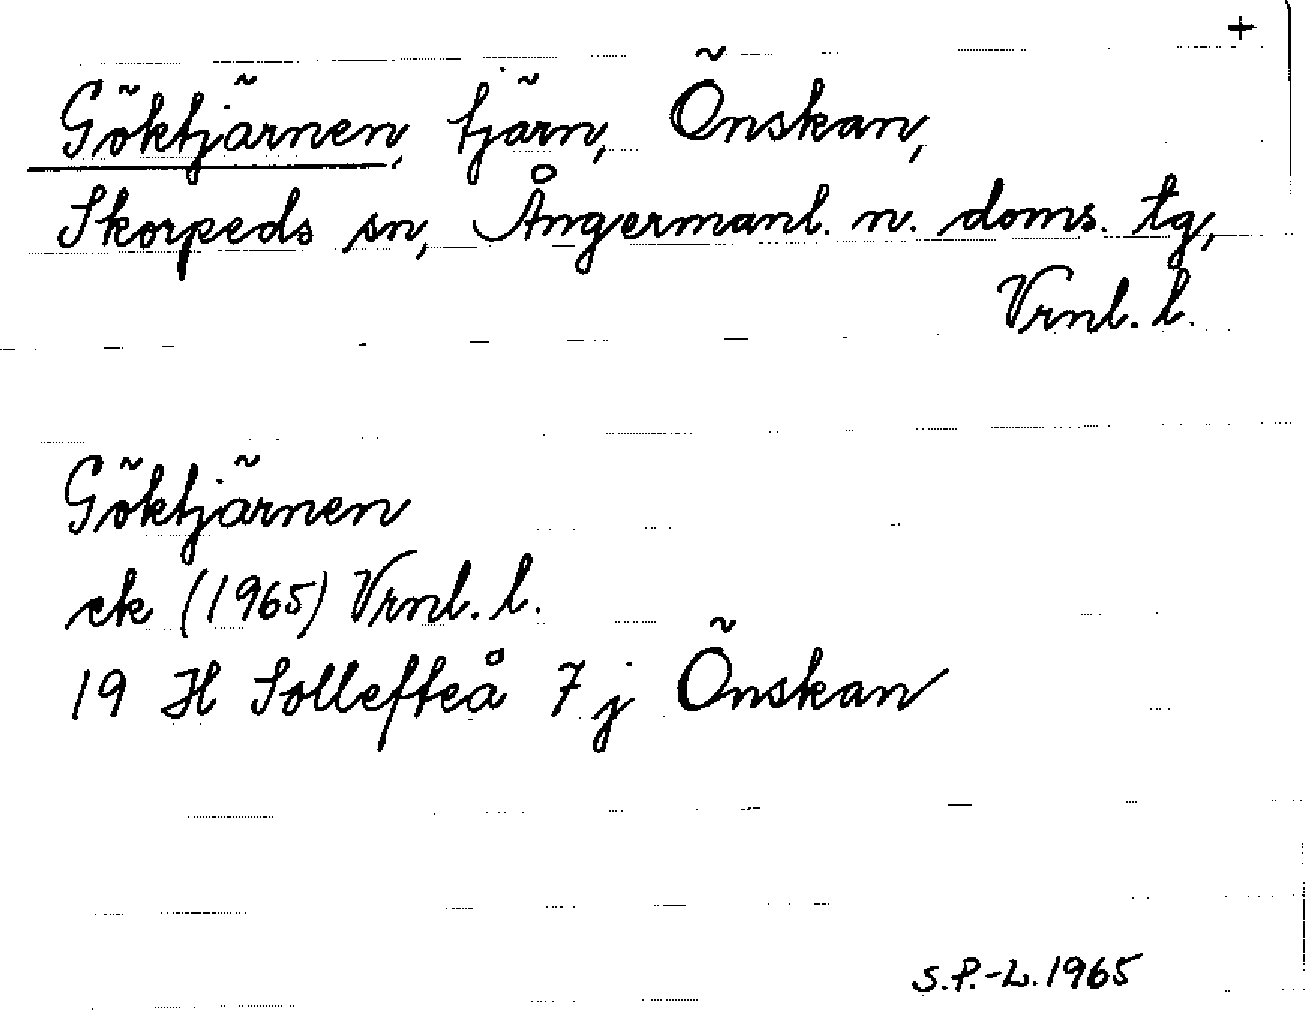 +
Göktjärnen, tjärn, Önskan,
Skorpeds sn, Ångermanl. n. doms. tg,
Vrnl. l.
Göktjärnen
ek (1965) Vrnl. l.
19 H Sollefteå 7 j Önskan
S.P.-L. 1965